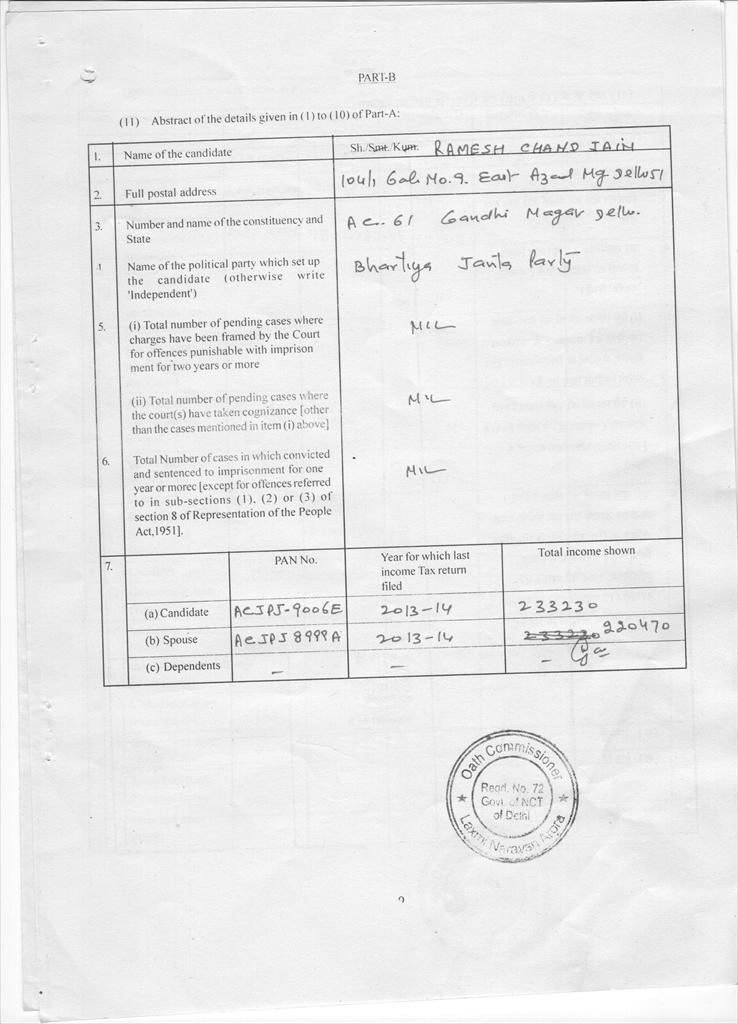 PART-B
(11) Abstract of the details given in (1) to (10) of Part-A:
1. Name of the candidate Sh./Smt./Kum. RAMESH CHAND JAIN
2. Full postal address 104/1 Gali No.9. East Azad Ng Delhi 51
3. Number and name of the constituency and AC-61 Gandhi Nagar Delhi.
State
Name of the political party which set up Bhartiya Janta Party
the candidate (otherwise write
'Independent')
5. (i) Total number of pending cases where NIL
charges have been framed by the Court
for offences punishable with imprison
ment for two years or more
(ii) Total number of pending cases where NIL
the court(s) have taken cognizance [other
than the cases mentioned in item (i) above]
6. Total Number of cases in which convicted NIL
and sentenced to imprisonment for one
year or morec [except for offences referred
to in sub-sections (1), (2) or (3) of
section 8 of Representation of the People
Act,1951].
7. PAN No. Year for which last Total income shown
income Tax return
filed
(a) Candidate ACJPJ-9006E 2013-14 233230
(b) Spouse ACJPJ8999A 2013-14 233220 220470
(c) Dependents - - -
Oath Commissioner
Regd. No. 72
Govt. of NCT
of Delhi
Laxmi Narayan Arora